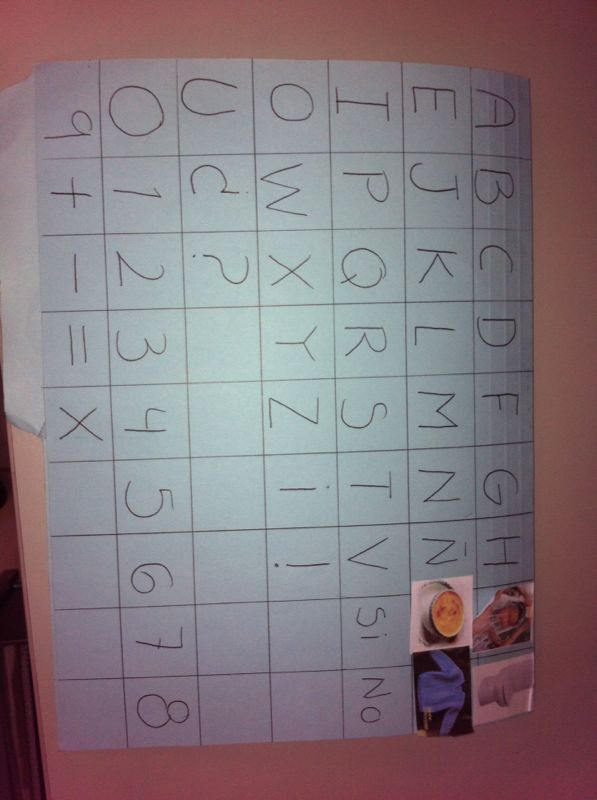 A B C D F G H
E J K L M N Ñ
I P Q R S T V Si No
O W X Y Z ¡ !
U ¿ ?
0 1 2 3 4 5 6 7 8
9 + - = X